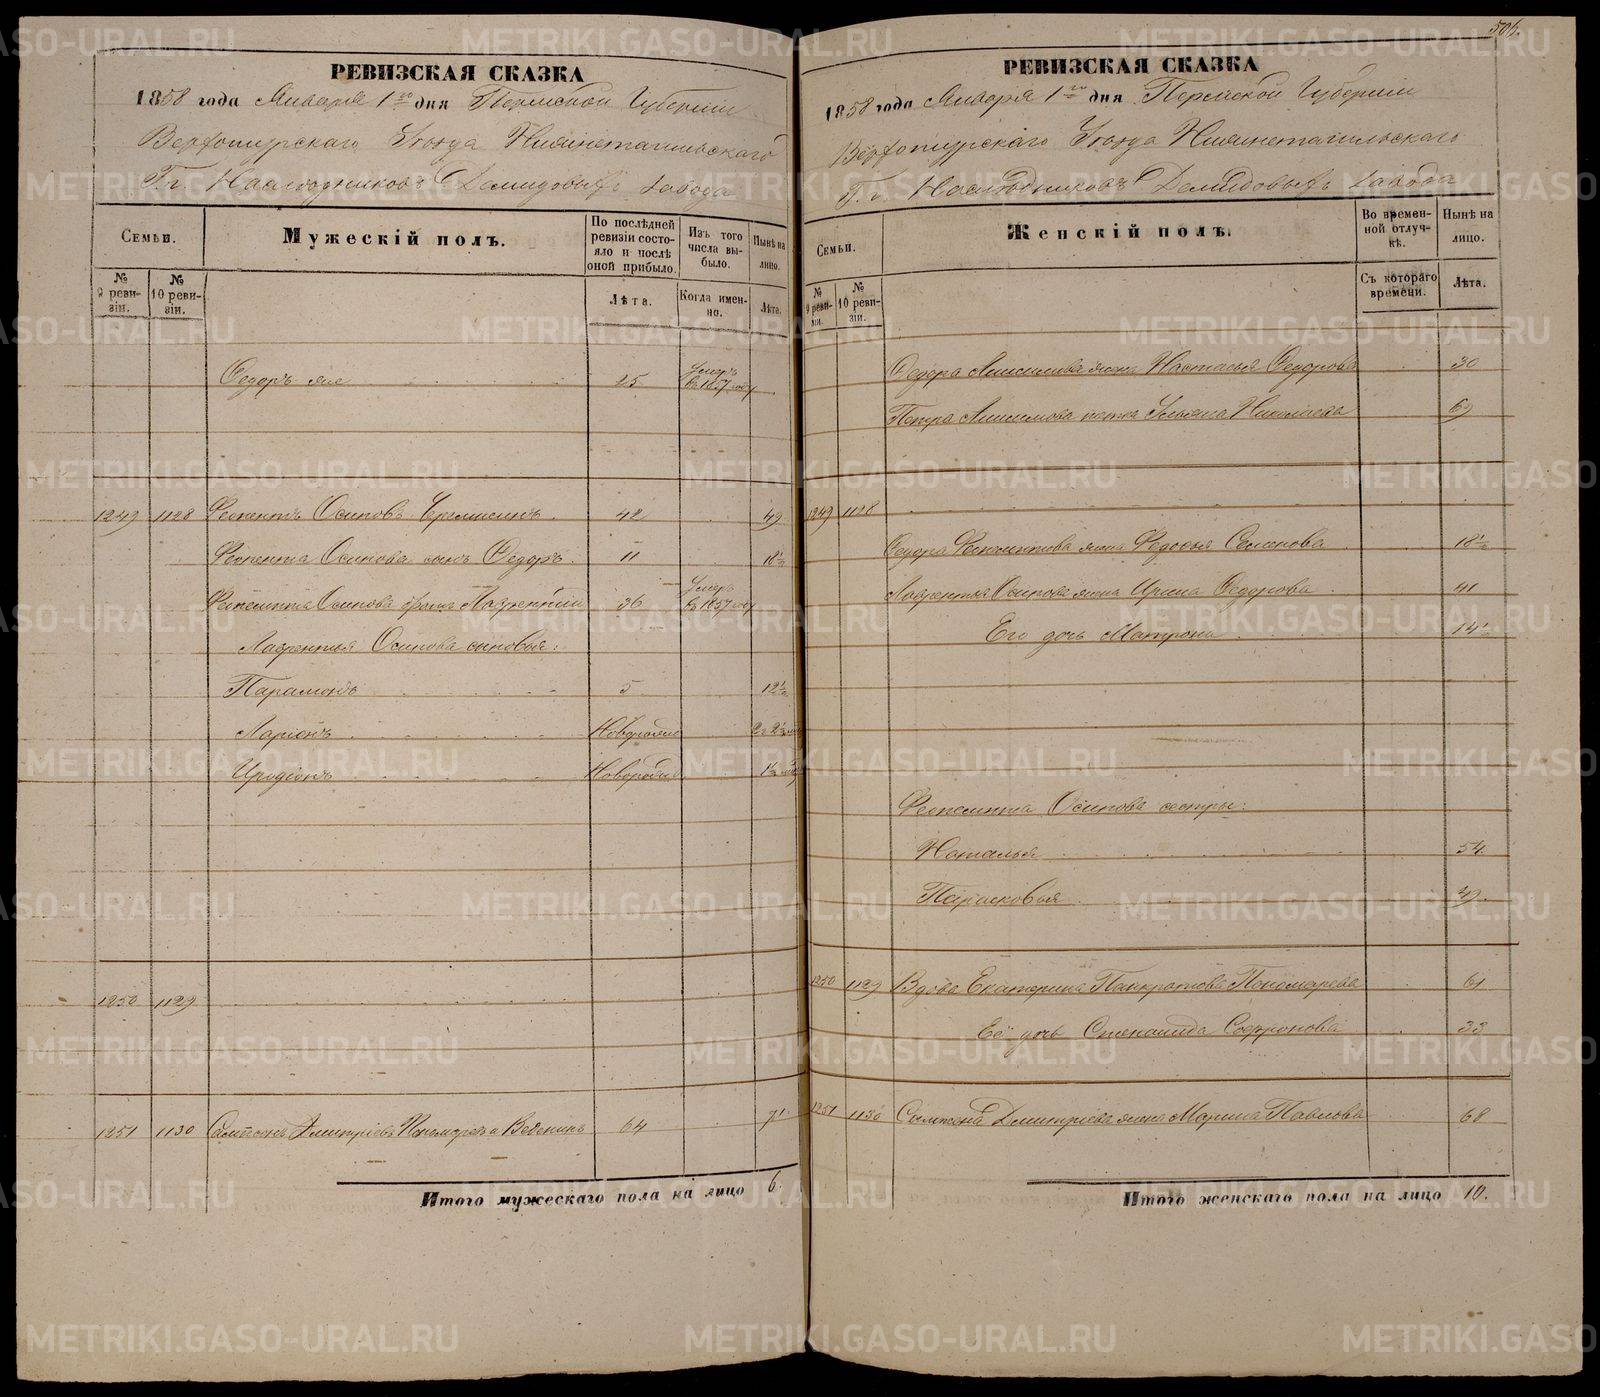 РЕВИЗСКАЯ СКАЗКА
1858 года Января 1го дня Пермской Губернии
Верхотурскаго Уѣзда Нижнетагильскаго
Г.г. Наслѣдниковъ Демидовыхъ завода
Семьи.
Мужескій полъ.
По послѣдней ревизіи состояло и послѣ оной прибыло.
Изъ того числа выбыло.
Нынѣ на лицо.
№ 9 ревизіи.
№ 10 ревизіи.
Лѣта.
Когда именно.
Лѣта.
Федоръ 25 Умеръ въ 1857 году
1249 1128 Осиповъ 42 49
Осипова сынъ Федоръ 11 18½
Осипова братъ Лаврентій 36 Умеръ въ 1857 году
Лаврентья Осипова сыновья:
Парамонъ 5 12½
Ларіонъ Новорожд
Иродіонъ Новорожд
1250 1129
1251 1130 Дмитріевъ 64 71
Итого мужескаго пола на лицо 6.
506.
РЕВИЗСКАЯ СКАЗКА
1858 года Января 1го дня Пермской Губерніи
Верхотурскаго Уѣзда Нижнетагильскаго
Г.г. Наслѣдниковъ Демидовыхъ завода
Семьи.
Женскій полъ.
Во временной отлучкѣ.
Нынѣ на лицо.
№ 9 ревизіи.
№ 10 ревизіи.
Съ котораго времени.
Лѣта.
Федора жена Настасья Федорова 30
Петра Николаева 69
1249 1128
Федора жена Федосья Семенова 18½
Лаврентья Осипова жена Ирина Федорова 41
Его дочь Матрона 14½
Осипова сестры:
Наталья 54
Парасковья 49
1250 1129 Вдова Екатерина Панкратова Пономарева 61
Её дочь Степанида Софронова 33
1251 1130 Дмитріева жена Марина Павлова 68
Итого женскаго пола на лицо 10.
METRIKI.GASO-URAL.RU